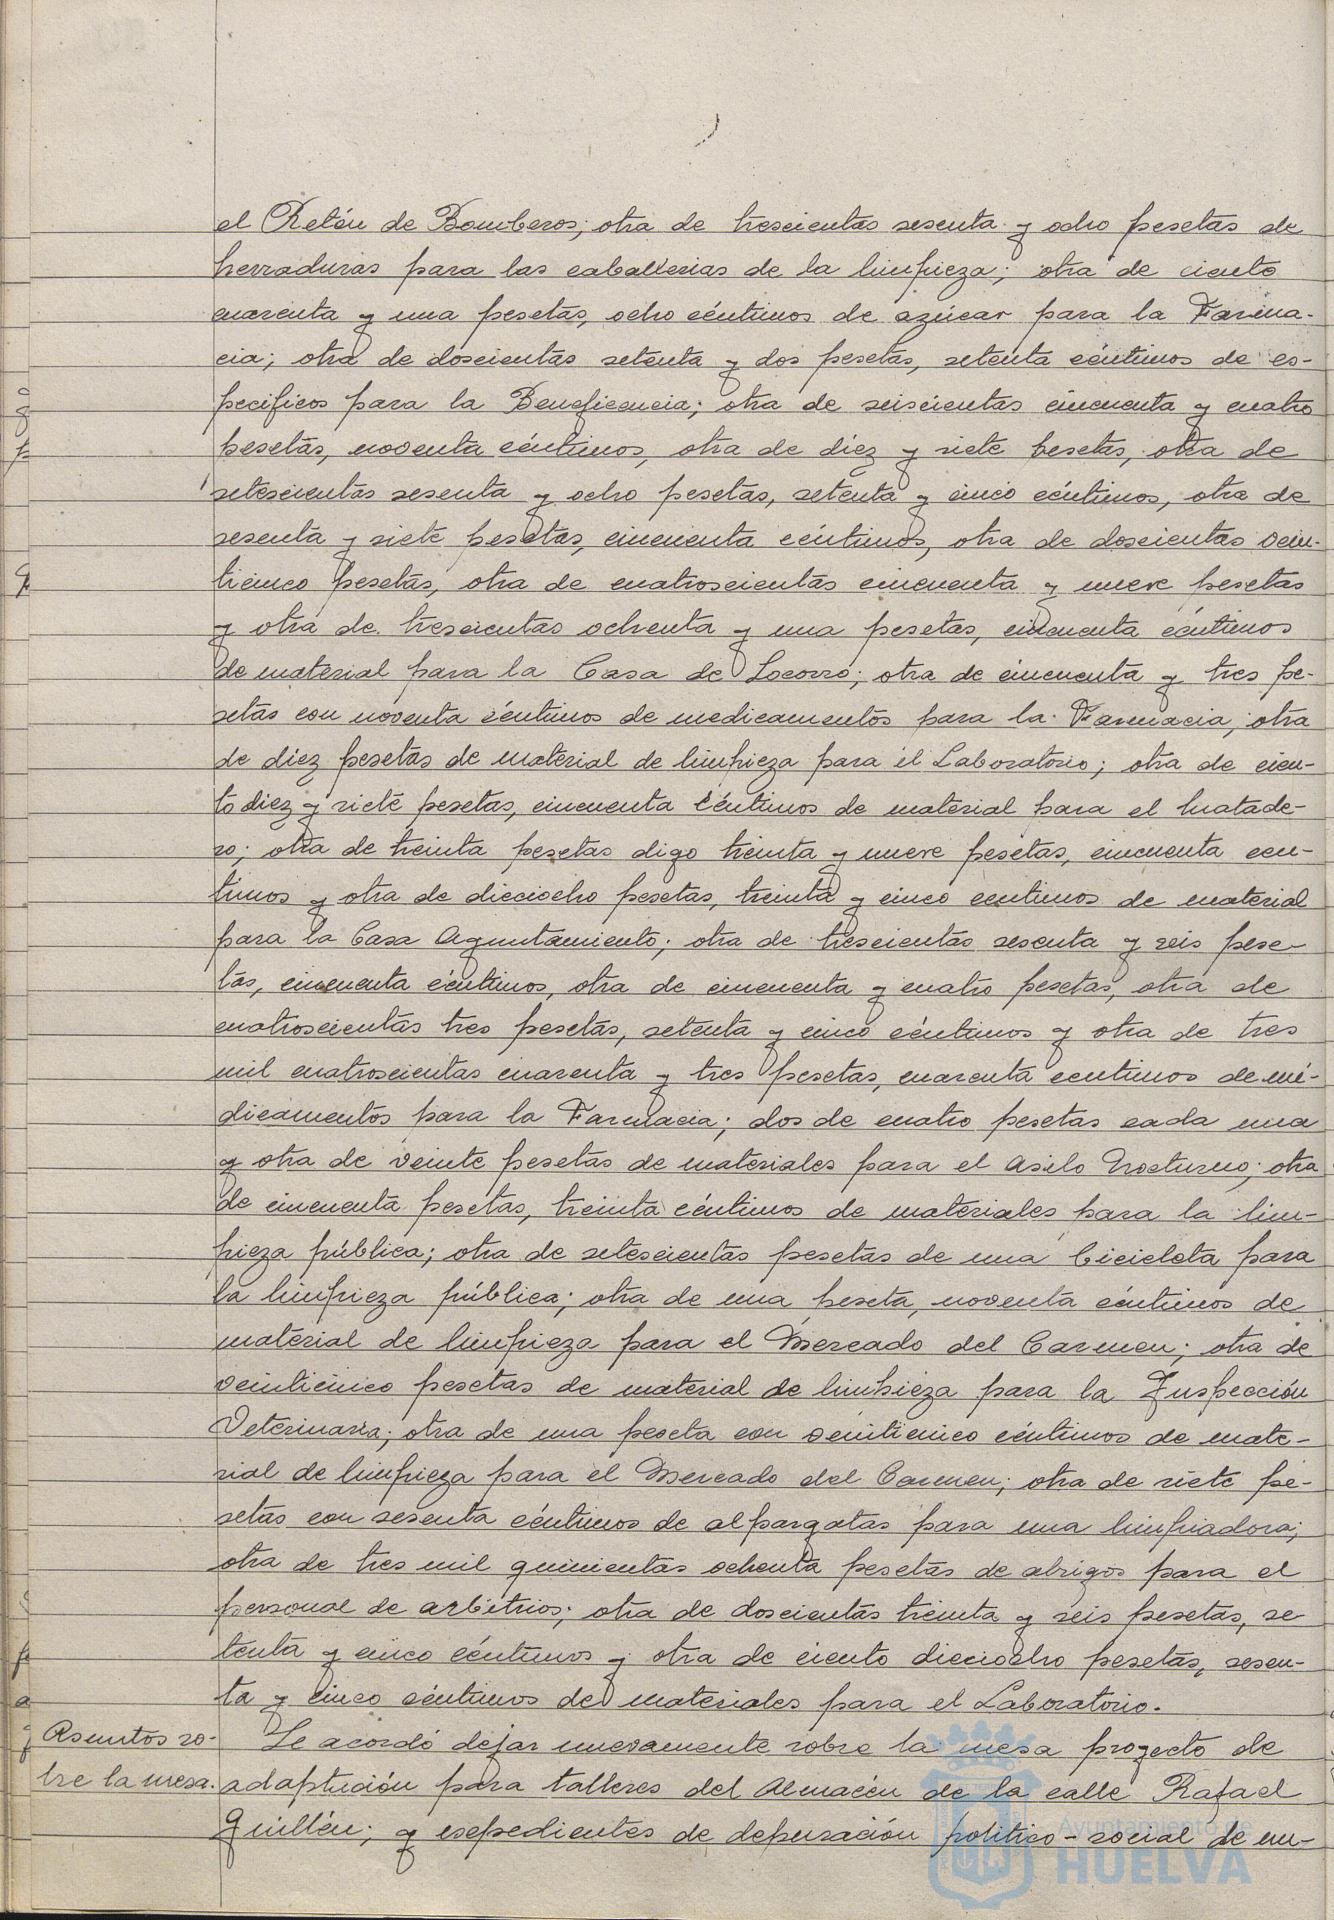 el Retén de Bomberos; otra de trescientas sesenta y ocho pesetas de
herraduras para las caballerias de la limpieza; otra de ciento
cuarenta y una pesetas, ocho céntimos de azúcar para la Farma-
cia; otra de doscientas setenta y dos pesetas, setenta céntimos de es-
pecificos para la Beneficencia; otra de seiscientas cincuenta y cuatro
pesetas, noventa céntimos, otra de diez y siete pesetas, otra de
setescientas sesenta y ocho pesetas, setenta y cinco céntimos, otra de
sesenta y siete pesetas, cincuenta céntimos, otra de doscientas vein-
ticinco pesetas, otra de cuatroscientas cincuenta y nueve pesetas
y otra de trescientas ochenta y una pesetas, cincuenta céntimos
de material para la Casa de Socorro; otra de cincuenta y tres pe-
setas con noventa céntimos de medicamentos para la Farmacia; otra
de diez pesetas de material de limpieza para el Laboratorio; otra de cien-
to diez y siete pesetas, cincuenta céntimos de material para el Matade-
ro; otra de treinta pesetas digo treinta y nueve pesetas, cincuenta cen-
timos y otra de dieciocho pesetas, treinta y cinco centimos de material
para la Casa Ayuntamiento; otra de trescientas sesenta y seis pese-
tas, cincuenta céntimos, otra de cincuenta y cuatro pesetas, otra de
cuatroscientas tres pesetas, setenta y cinco céntimos y otra de tres
mil cuatroscientas cuarenta y tres pesetas, cuarenta centimos de me-
dicamentos para la Farmacia; dos de cuatro pesetas cada una
y otra de veinte pesetas de materiales para el Asilo Nocturno; otra
de cincuenta pesetas, treinta céntimos de materiales para la lim-
pieza pública; otra de setescientas pesetas de una bicicleta para
la limpieza pública; otra de una peseta, noventa céntimos de
material de limpieza para el Mercado del Carmen; otra de
veinticinco pesetas de material de limpieza para la Inspección
Veterinaria; otra de una peseta con veinticinco céntimos de mate-
rial de limpieza para el Mercado del Carmen; otra de siete pe-
setas con sesenta céntimos de alpargatas para una limpiadora;
otra de tres mil quinientas ochenta pesetas de abrigos para el
personal de arbitrios; otra de doscientas treinta y seis pesetas, se-
tenta y cinco céntimos y otra de ciento dieciocho pesetas, sesen-
ta y cinco céntimos de materiales para el Laboratorio.
Asuntos so-
bre la mesa.
Se acordó dejar nuevamente sobre la mesa proyecto de
adaptación para talleres del Almacén de la calle Rafael
Guillén; y expedientes de depuración politico-social de em-
Ayuntamiento de
HUELVA